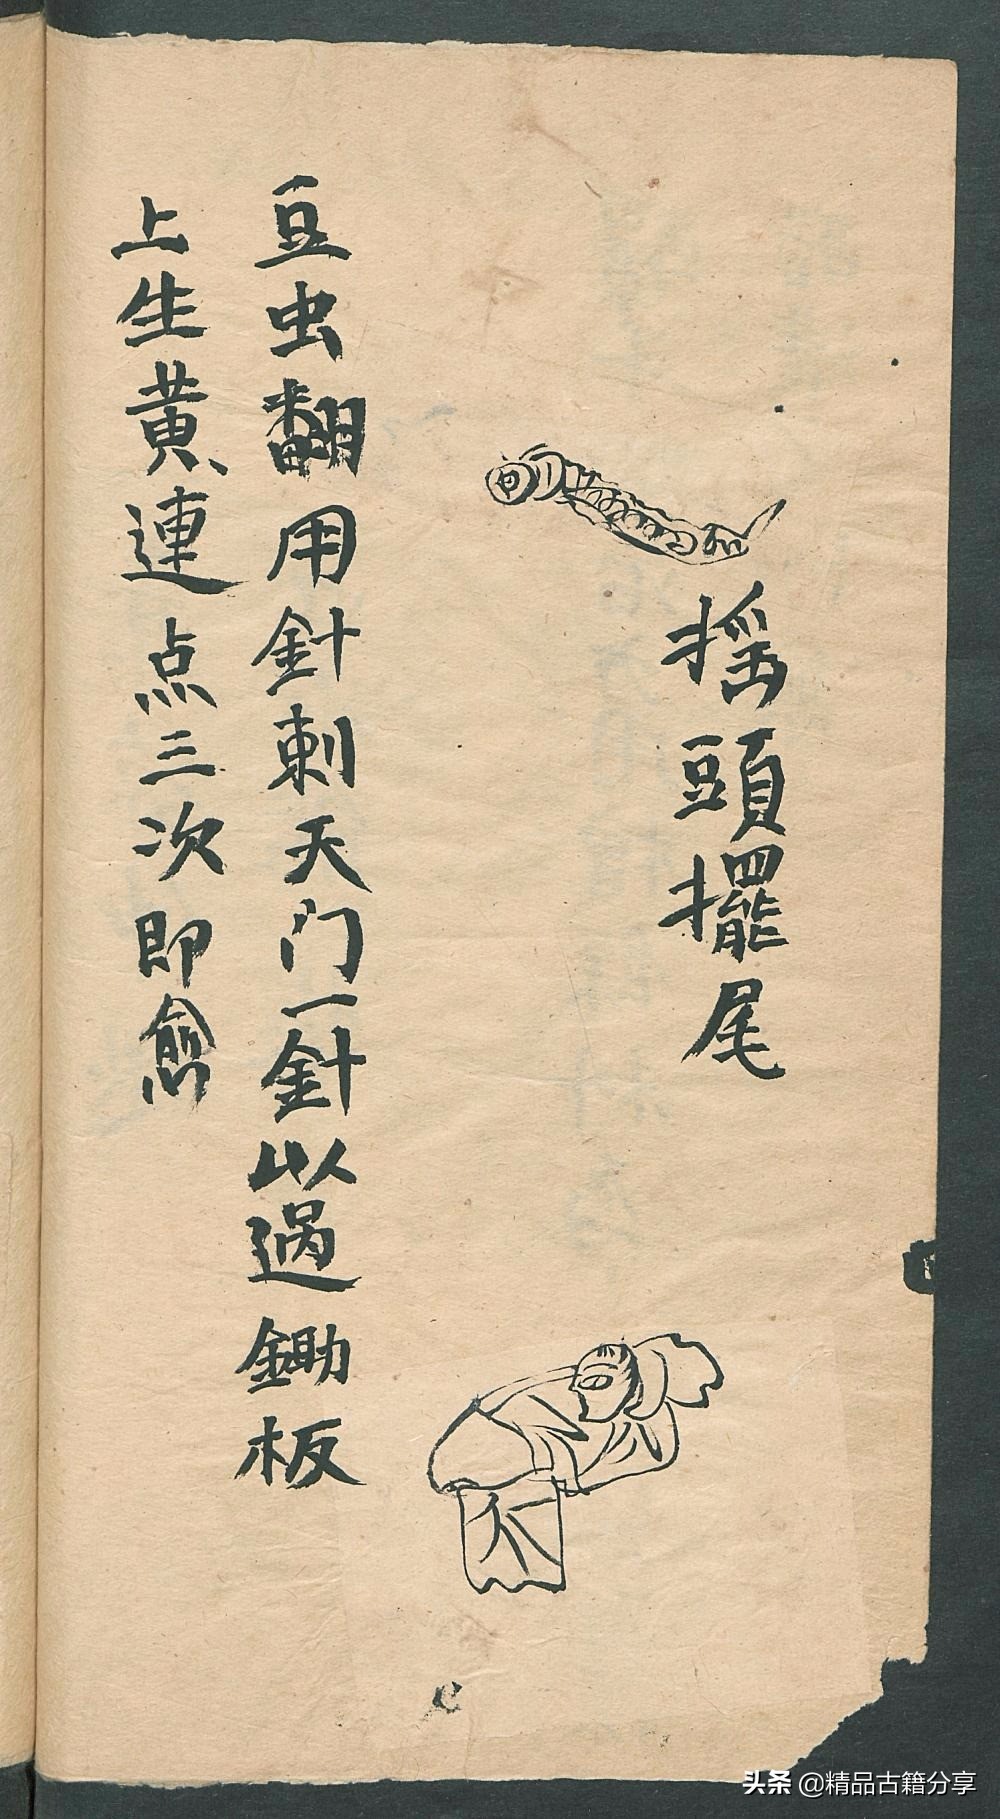 摇頭擺尾
豆虫翻用針刺天门一針以過鋤板
上生黄連点三次即愈
头条 @精品古籍分享